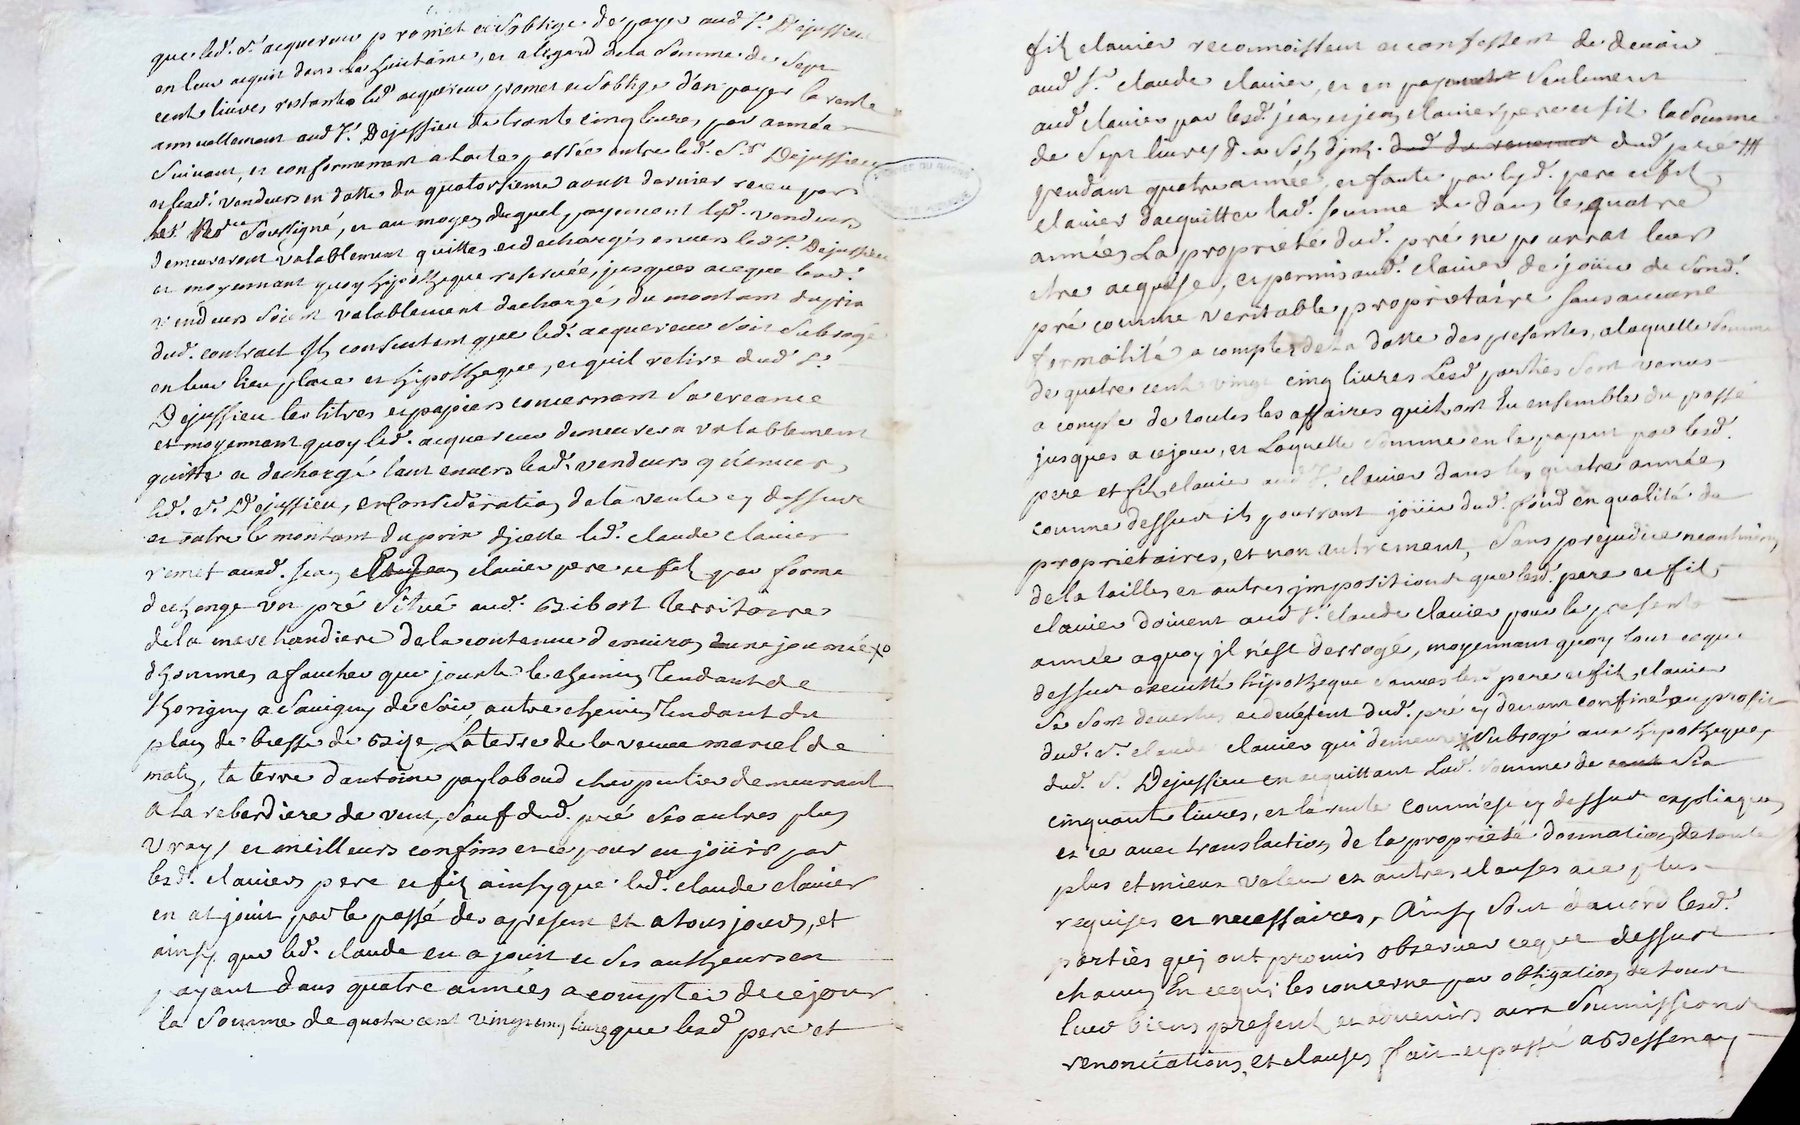 que led. Sr. acquereur promet et s'oblige de payer aud Sr. Dejussieu
en leur acquit dans la huictaine, et a légard de la Somme de Sept
cent livres restante led. acquereur promet et s'oblige d'en payer la rente
annuellement aud Sr. Dejussieu de trente cinq livres, par année
Suivant, et conformement a l'acte passée entre led. Sr. Dejussieu
et lesd. vendeurs en datte du quatorsieme aoust dernier receu par
Soussigné, et au moyen duquel payement lesd. vendeurs
demeureront valablement quittes et dechargés envers led Sr. Dejussieu
et moyennant quoy hipotheque reservée, jusques a ceque lesd.
vendeurs soient valablement dechargés du montant du prix
dud. contract Ils consentent que led. acquereur soit Subrogé
en leur lieu place et hipotheque, et quil retire dud Sr.
Dejussieu les titres et papiers concernant Sa creance
et moyennant quoy led. acquereur demeurera valablement
quitte et dechargé tant envers lesd. vendeurs qu'envers
led. Sr. Dejussieu, en Consideration de la vente cy dessus
et outre le montant du prix d'jcelle led. claude clavier
remet auxd. jean et jean clavier pere et fils par forme
dechange un pré Situé aud. Bibost Territoire
de la marchandiere de la contenue d'environ une journée
d'hommes a faucher que jouxte le chemin Tendant de
Thorigny a Savigny de Soir autre chemin Tendant du
plan de biesse de Bize, La terre de la veuve marcel de
matin, la terre d'antoine paylaboud charpentier demeurant
a la reberdiere de vent, Sauf dud. pré Ses autres plus
vrays et meilleurs confins et ce pour en joüir par
lesd. claviers pere et fils ainsy que led. claude clavier
en at jouit par le passé des apresent et a tous jours, et
ainsy que led. claude en a jouit et Ses autheurs en
payant dans quatre années a compter de ce jour
la Somme de quatre cent vingt cinq livres que lesd pere et
fils clavier reconnoissent et confessent de devoir
aud Sr. claude clavier, et en payant Seulement
aud. clavier par lesd. jean et jean clavier pere et fils la Somme
de Sept livres dud. pré
pendant quatre années, et faute par lesd. pere et fils
clavier d'acquitter lad. somme dans les quatre
années La propriété dud. pré ne pourrat leur
etre acquise, et permis aud. clavier de joüir de Sond.
pré comme veritable proprietaire Sans aucune
formalité a compter de la datte des presentes, a laquelle Somme
de quatre cent vingt cinq livres Lesd parties Sont venus
a compte de toutes les affaires quil ont Eu ensemble du passé
jusques a ce jour, et Laquelle Somme en le payant par lesd.
pere et fils clavier aud Sr. clavier dans les quatre années
comme dessus ils pourront joüir dud. fond en qualité de
proprietaires, et non autrement, Sans prejudice neantmoins
de la tailles et autres jmpositions que lesd. pere et fils
clavier doivent aud Sr. claude clavier pour la presente
année a quoy jl n'est derrogé, moyennant quoy tout ce que
dessus executté hipotheque lesd pere et fils clavier
Se Sont devestus et devetent dud. pré cy devant confiné au profit
dud. Sr. claude clavier qui demeure Subrogé aux hipotheques
dud. Sr. Dejussieu en acquittant Lad. Somme de Six
cinquante livres, et la rente comme cy dessus expliqués
et ce avec translaction de la propriété donnation de toute
plus et mieux value et autres clauses a ce plus
requises et necessaires, Ainsy Sont d'accord lesd.
parties qui ont promis observer ce que dessus
chacun En ce qui les concerne par obligation de tous
leurs biens present et avenirs aux Soumissions
renonciations, et clauses fait et passé a Bessenay